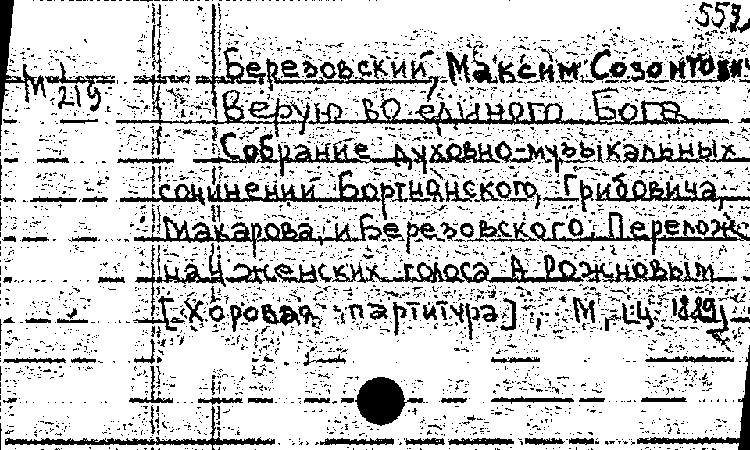 559
Березовский, Максим Созонтович
М 219.
Верую во единого Бога
Собрание духовно-музыкальных
сочинений Бортнянского, Грибовича,
Макарова, и Березовского. Перелож
на 4 женских голоса А Рожновым
[Хоровая партитура], М, ц 1889